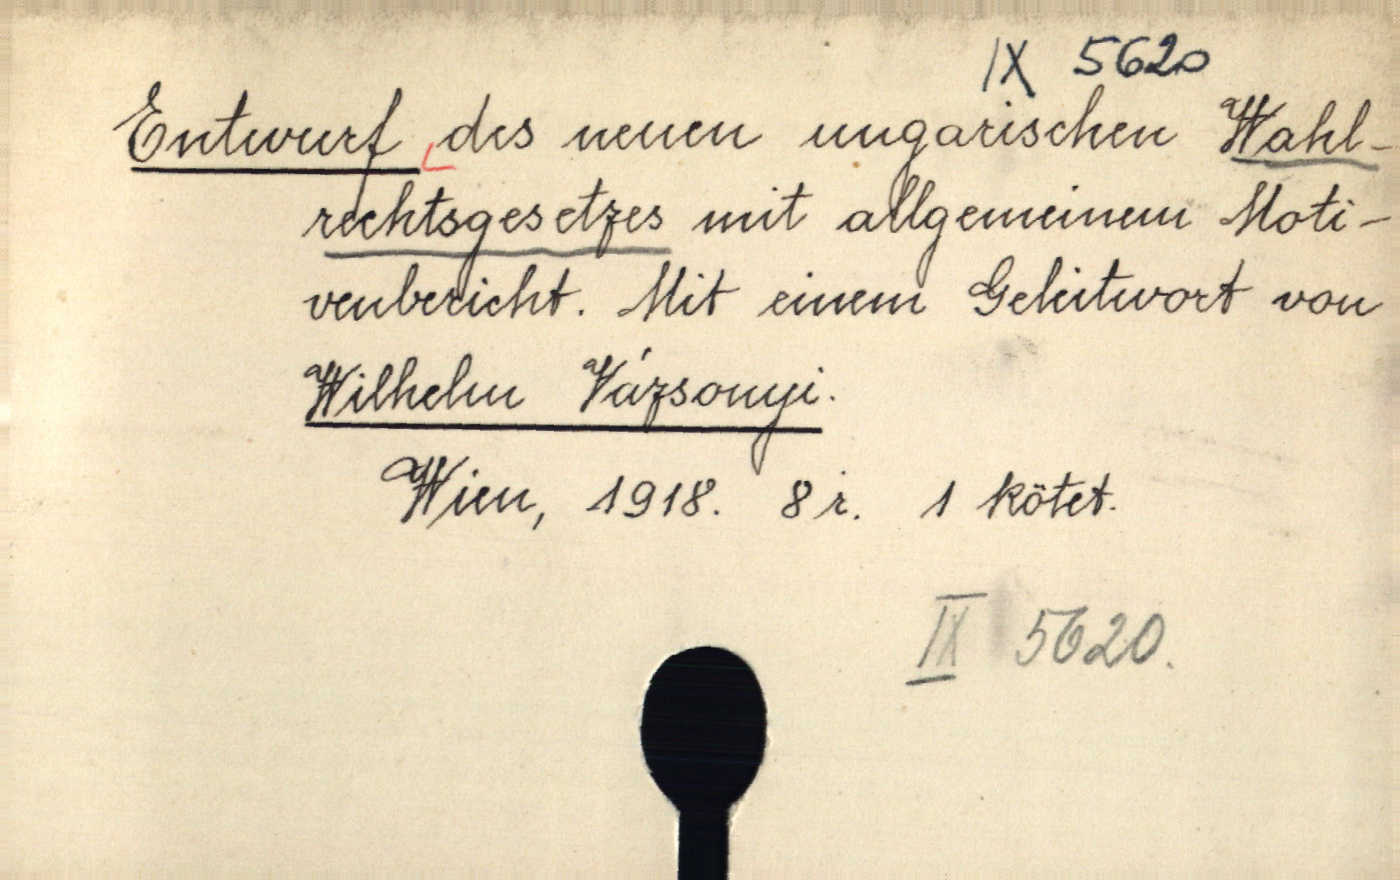 IX 5620
Entwurf des neuen ungarischen Wahl-
rechtsgesetzes mit allgemeinem Moti-
venbericht. Mit einem Geleitwort von
Wilhelm Vázsonyi.
Wien, 1918. 8 r. 1 kötet.
IX 5620.